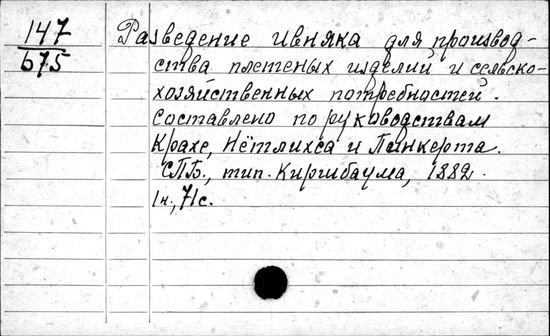 147
675
Разведение ивняка для производ-
ства плетеных изделий и сельско-
хозяйственных потребностей.
Составлено по руководствам
Крахе, Нётлихса и Пинкерта.
СПБ., тип. Киршбаума, 1882.
1н., 71с.